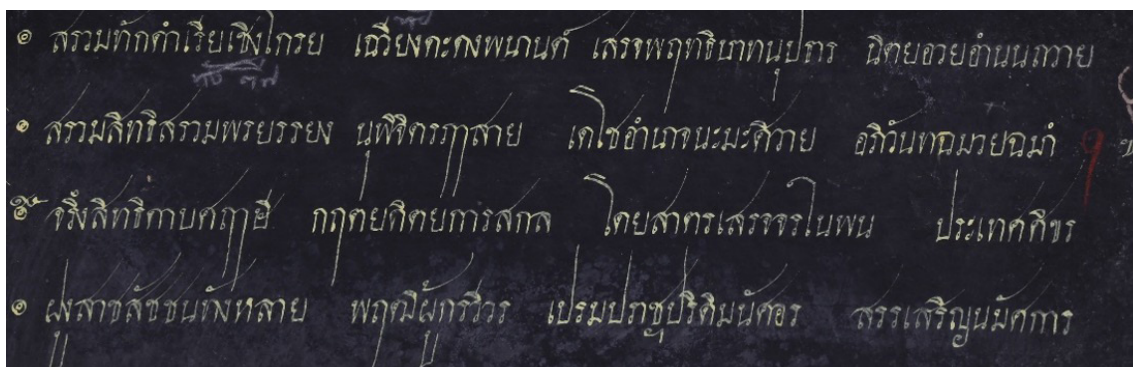 ๏ สรวมทักดำเรียเชิงไกรย เฉวียงคะคงพนานต์ เสรจพฤทธิบาทนุปราร นิตยอวยอำนนถวาย
๏ สรามสิทธิสรวมพรยรรยง นุพิจิตรฤๅสาย เดโชอำนาจนะมะศิวาย อภิวันทฉมวยฉมำ
๏ จรึงสิทธิดาบศฤๅษี กฤตยกิตยการสกล โดยสาตรเสรจจรไนพน ประเทศศิขร
๏ ฝูงสาชสัชชนทังหลาย พฤฒิผู้กรวีวร เปรมปราชญปรีดิมนัศอร สรรเสริญนมัศการ